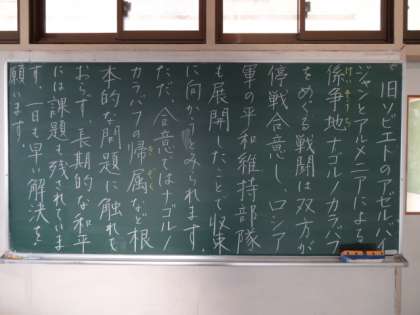 旧ソビエトのアゼルバイ
ジャンとアルメニアによる
係争地ナゴルノカラバフ
けいそうち
をめぐる戦闘は双方が
停戦合意し、ロシア
軍の平和維持部隊
も展開したことで収束
に向かうとみられます。
ただ、合意ではナゴルノ
カラバフの帰属など根
きぞく
本的な問題に触れて
おらず、長期的な和平
には課題も残されていま
す。一日も早い解決を
願います。